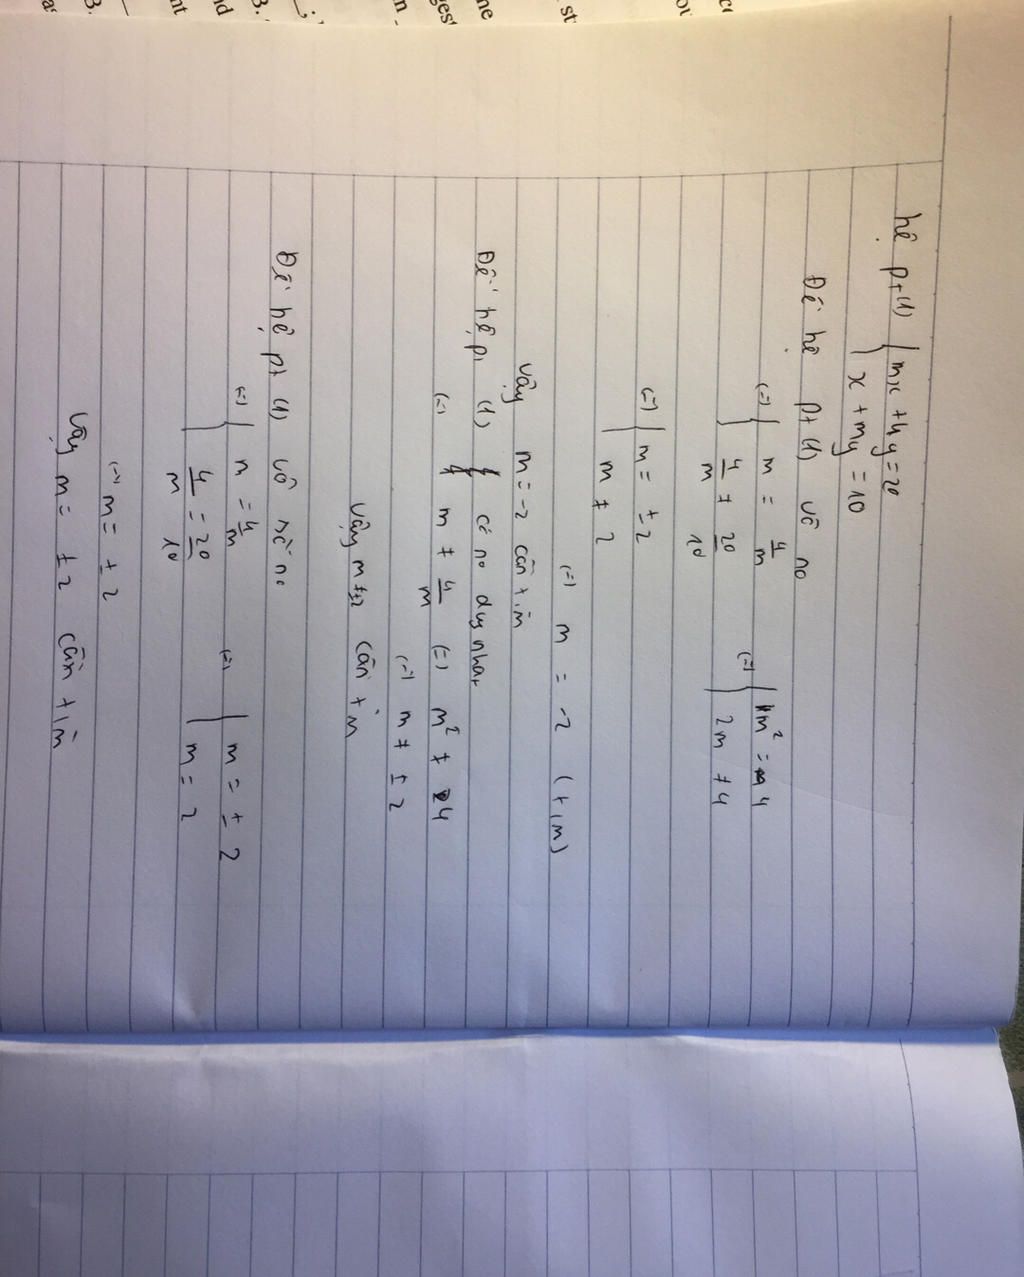 hệ pt (1) { mx + 4y = 20
{ x + my = 10
Để hệ pt (1) vô no
(=) { m = 4/m (=) { m² = 4
{ 4/m ≠ 20/10 { 2m ≠ 4
(=) { m = ± 2
{ m ≠ 2
(=) m = -2 (t/m)
Vậy m = -2 cần tìm
Để hệ pt (1) có no duy nhat
(=) m ≠ 4/m (=) m² ≠ 4
(=) m ≠ ± 2
Vậy m ≠ ±2 cần tìm
Để hệ pt (1) vô số no
(=) { m = 4/m (=) { m = ± 2
{ 4/m = 20/10 { m = 2
(=) m = ± 2
Vậy m = ± 2 cần tìm